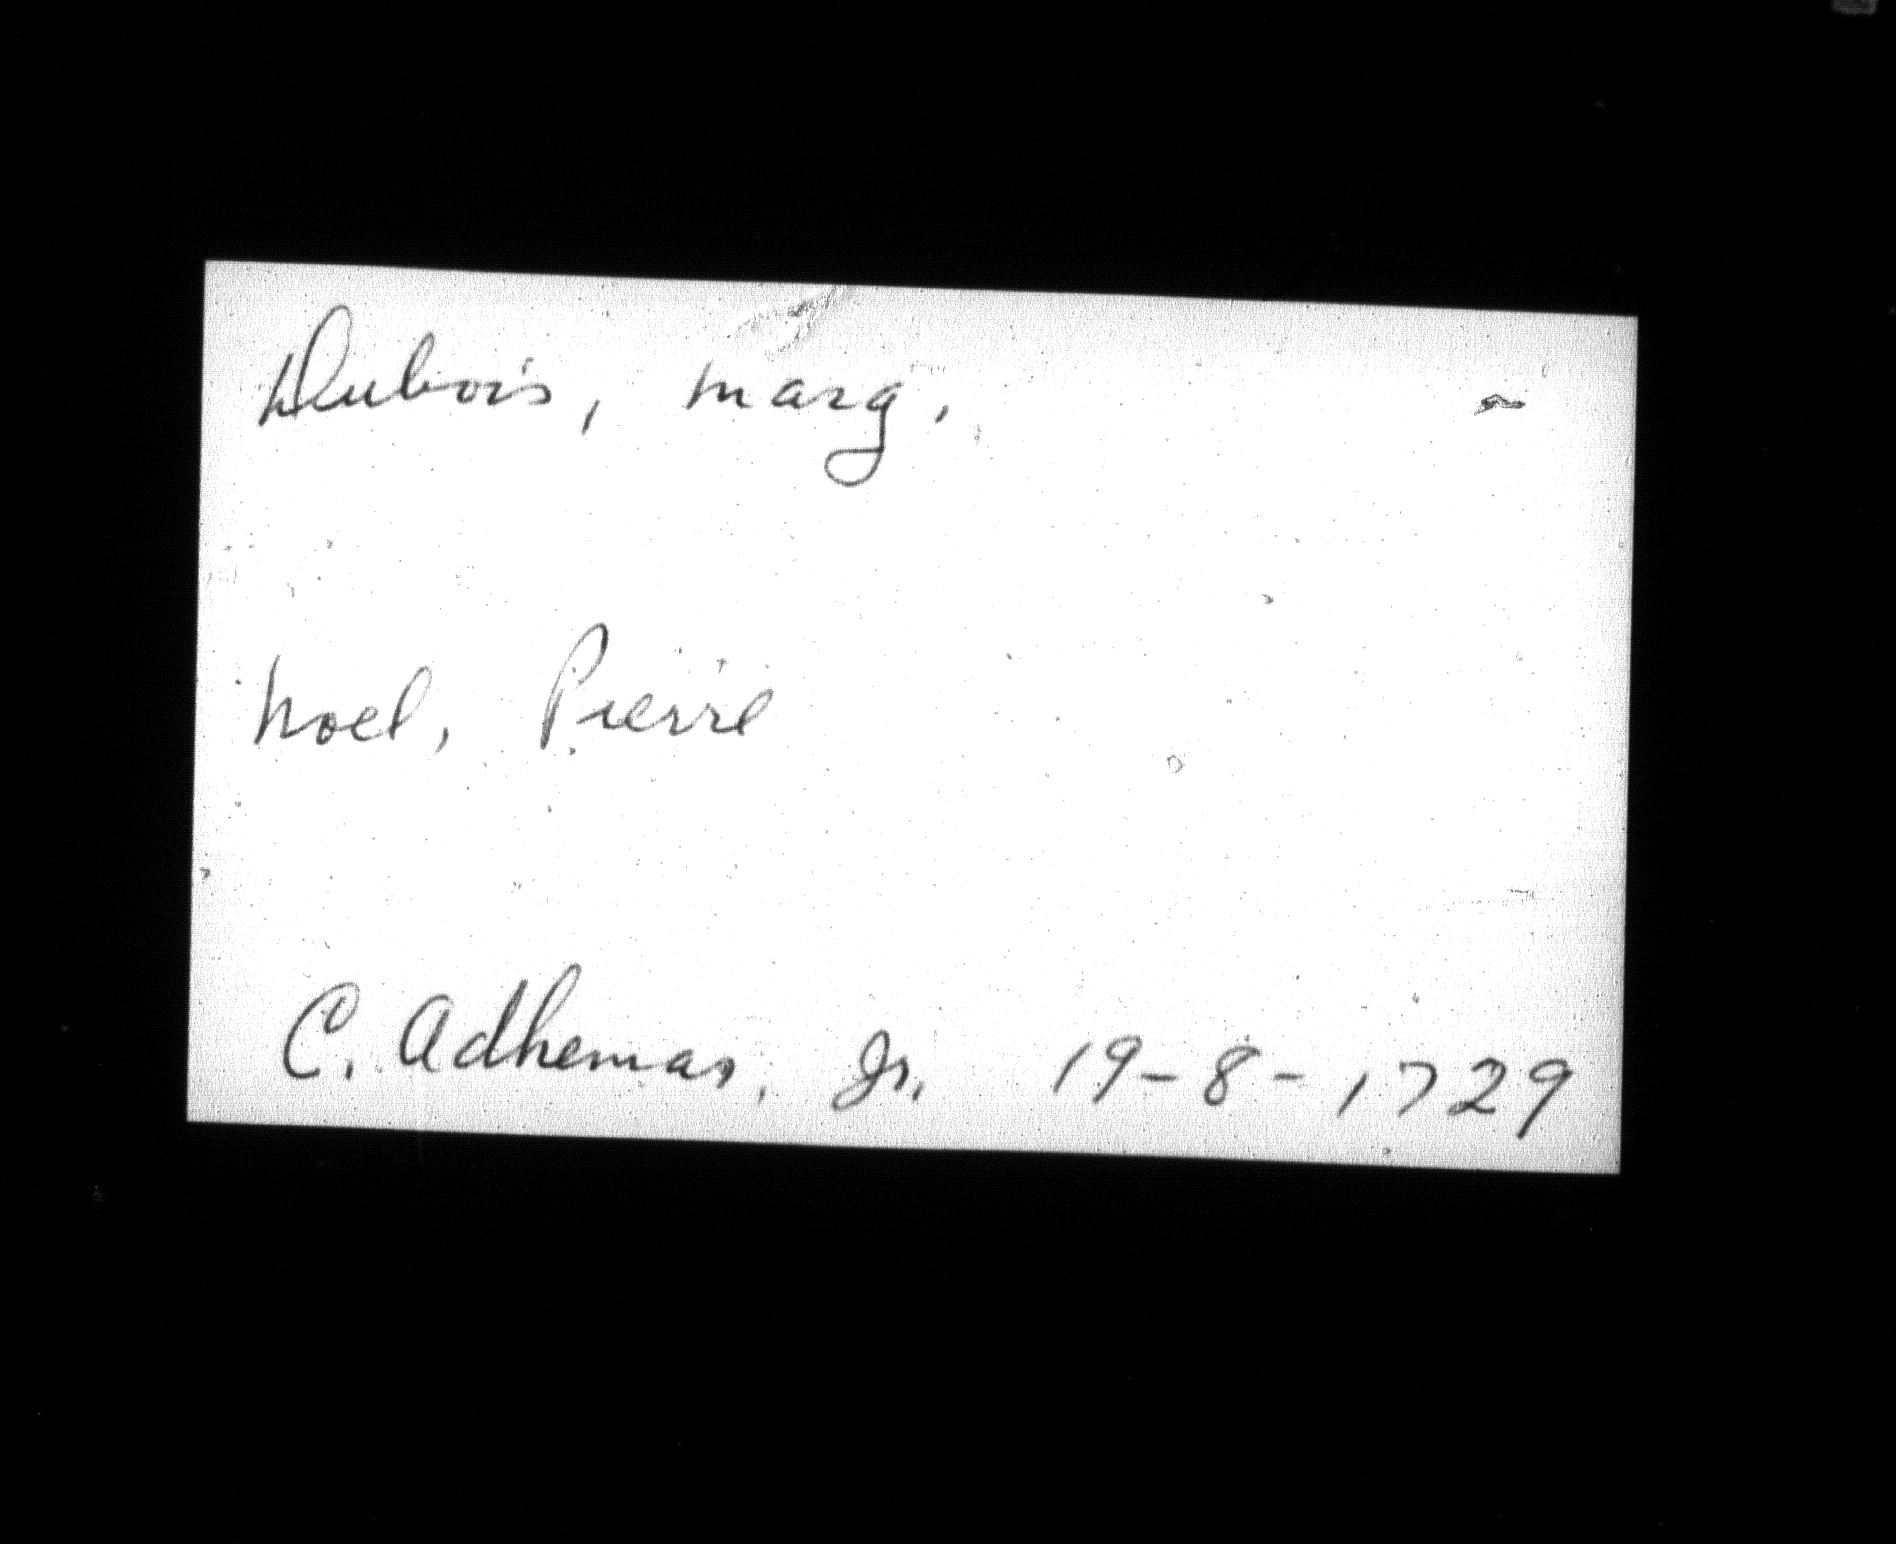 Dubois, Marg.
Noel, Pierre
C. Adhemar, Jr. 19-8-1729